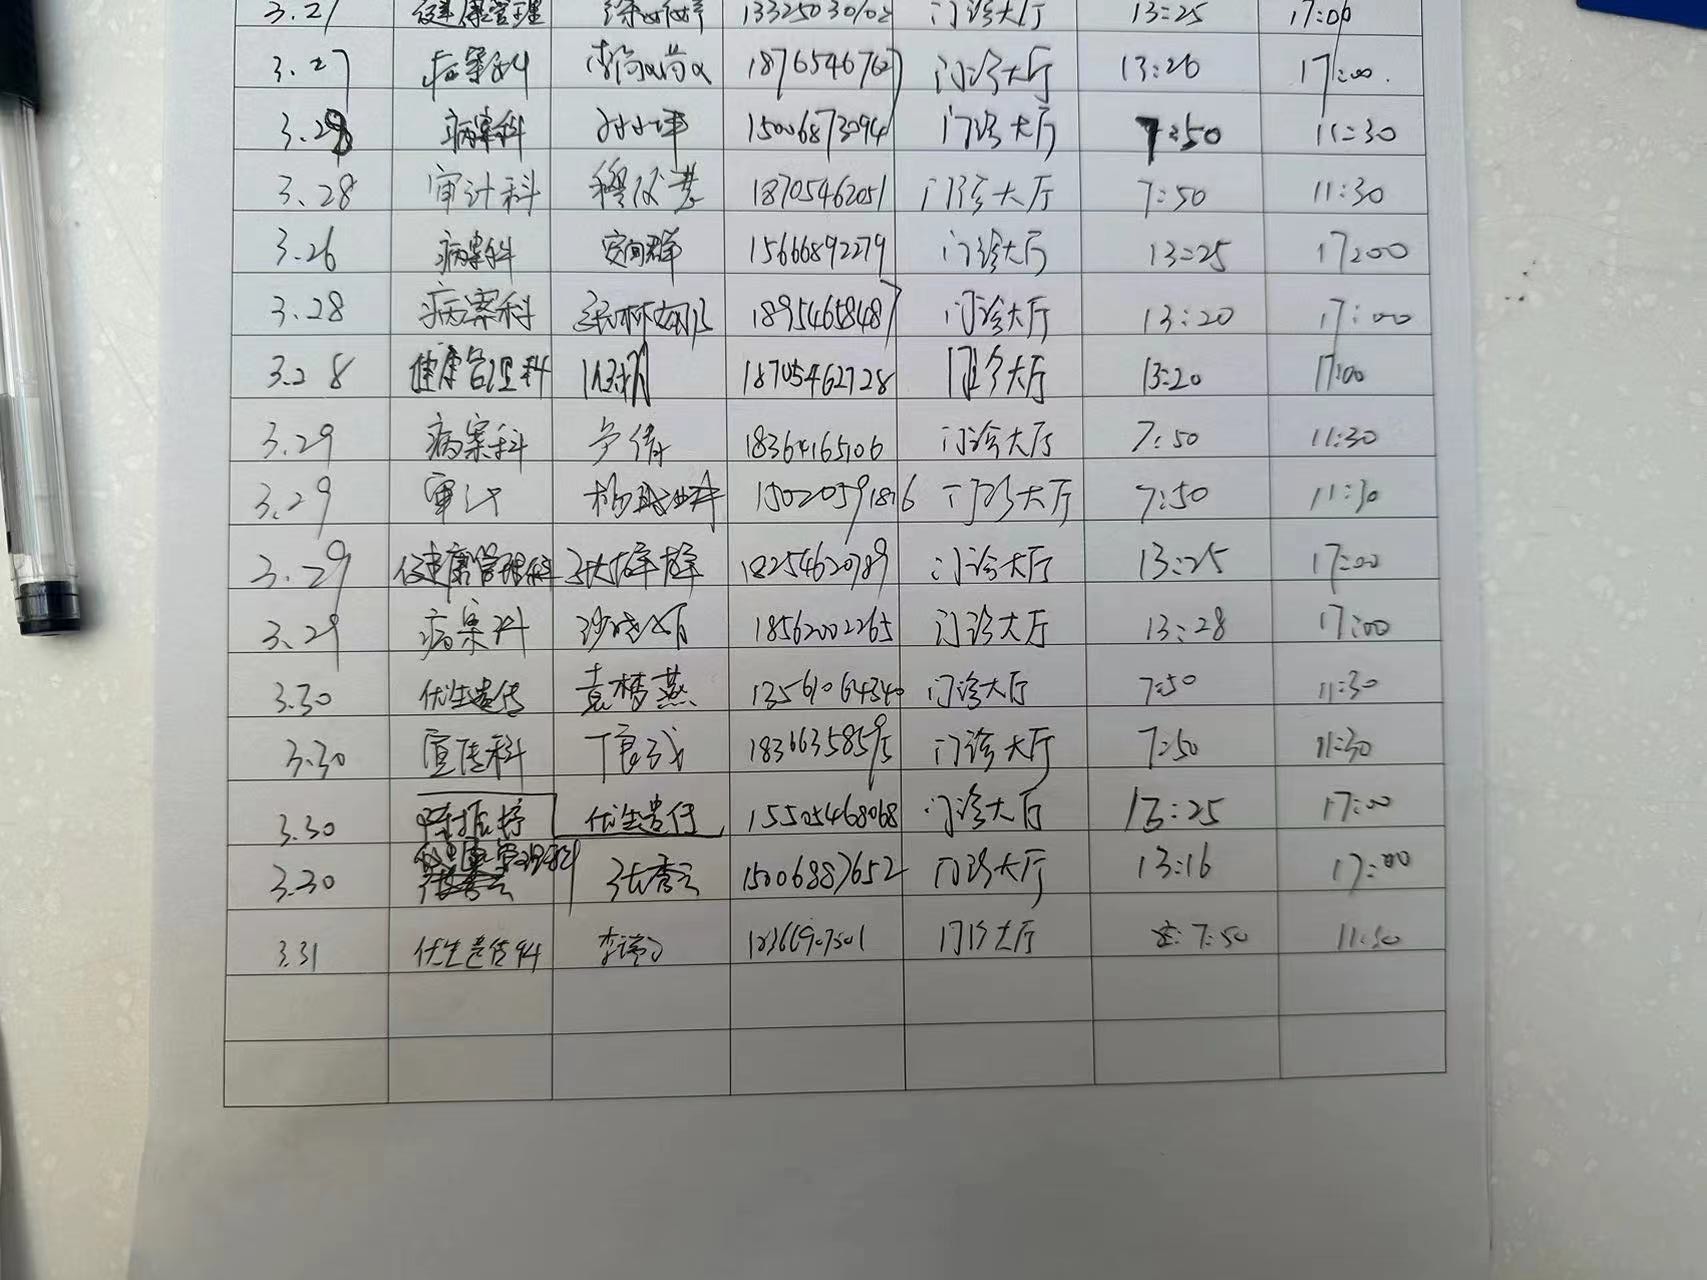 3.27 健康管理 13325030102 门诊大厅 13:25 17:00
3.27 病案科 18765467627 门诊大厅 13:26 17:00.
3.28 病案科 15006873094 门诊大厅 7:50 11:30
3.28 审计科 18705462051 门诊大厅 7:50 11:30
3.26 病案科 15666892279 门诊大厅 13:25 17:00
3.28 病案科 18954658487 门诊大厅 13:20 17:00
3.28 健康管理科 18705462728 门诊大厅 13:20 17:00
3.29 病案科 卢倩 18364165106 门诊大厅 7:50 11:30
3.29 审计 15020591816 门诊大厅 7:50 11:30
3.29 健康管理科 18254620789 门诊大厅 13:25 17:00
3.29 病案科 18562002265 门诊大厅 13:28 17:00
3.30 优生遗传 袁梦燕 13561064340 门诊大厅 7:50 11:30
3.30 宣传科 丁良成 18366358595 门诊大厅 7:50 11:30
3.30 优生遗传 15505468068 门诊大厅 13:25 17:00
3.30 健康管理科 张秀云 15006887652 门诊大厅 13:16 17:00
3.31 优生遗传科 门诊大厅 7:50 11:30